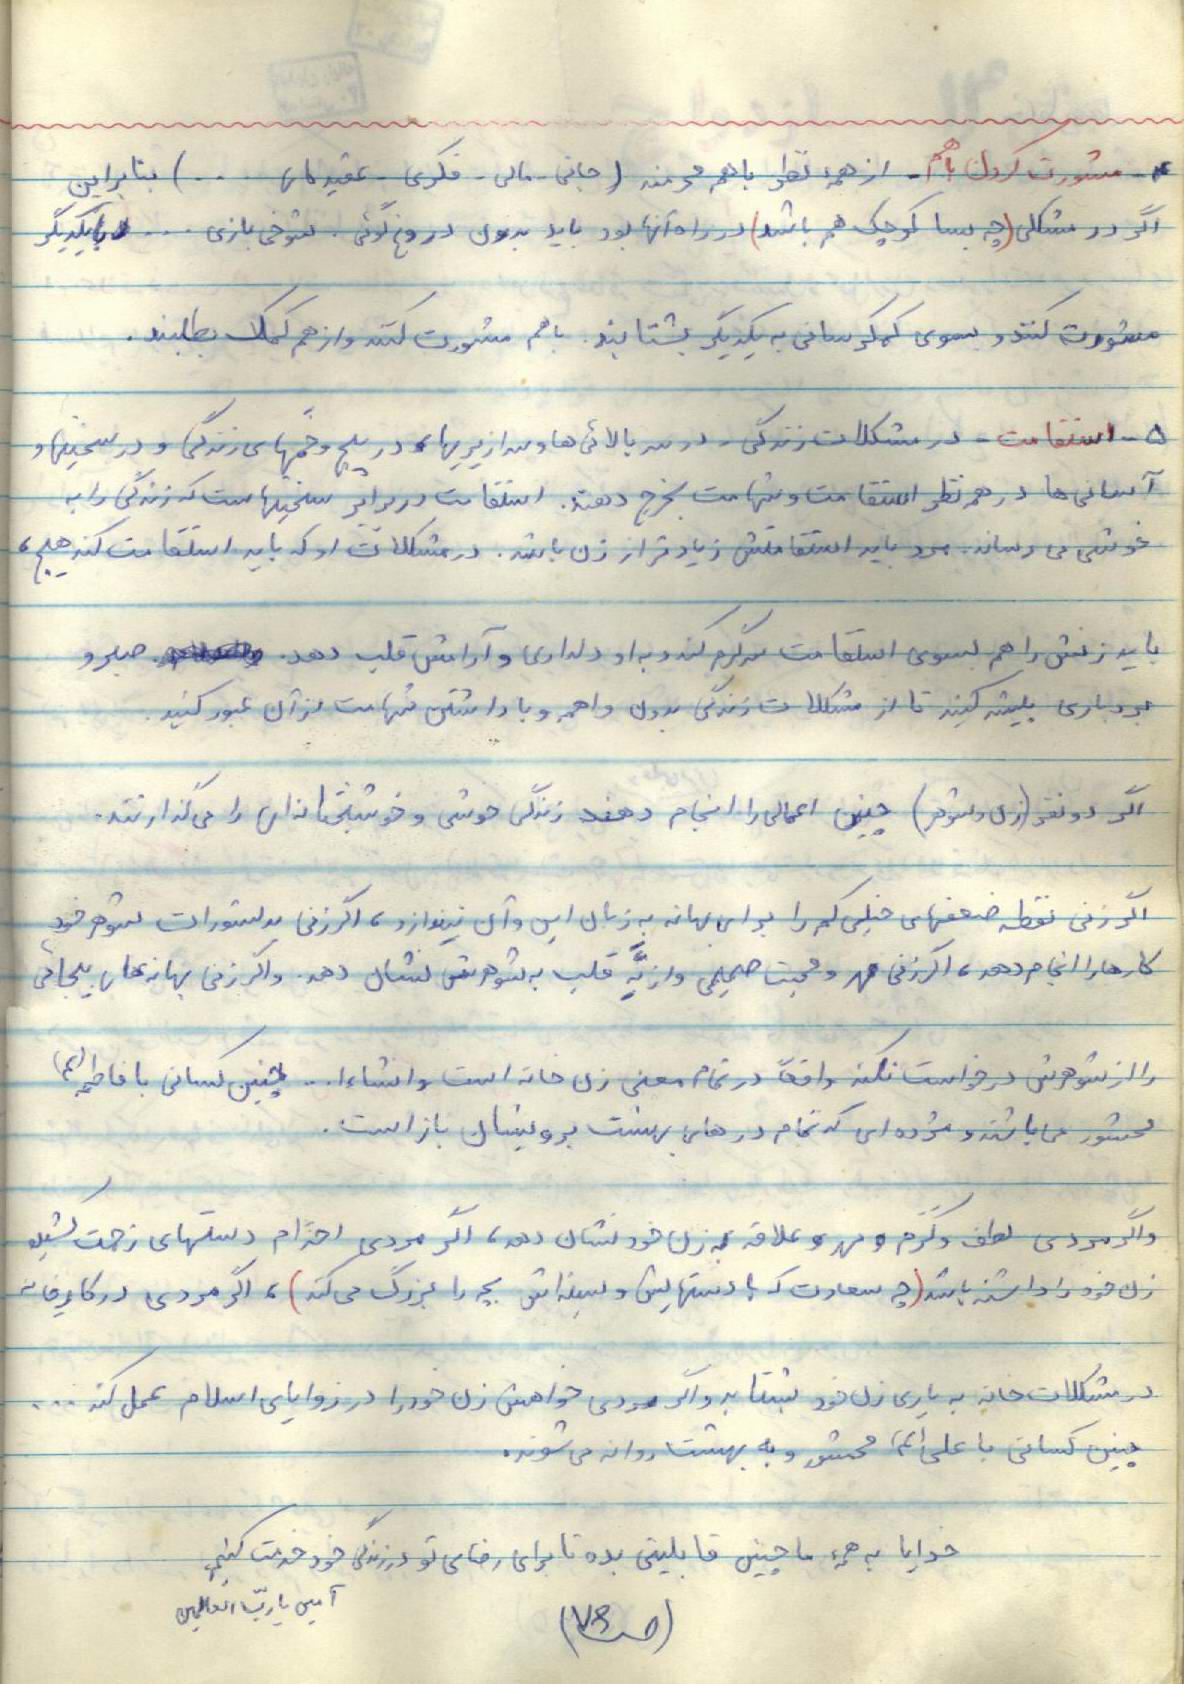 ۴- مشورت کردن با هم - از همه نظر با هم محرمند (جانی - مالی - فکری - عقیده‌ای ...) بنابراین
اگر در مشکلی (چه بسا کوچک هم باشد) در راه آنها بود باید بدون دروغ گوئی. شوخی بازی .... با یکدیگر
مشورت کنند و بسوی کمک رسانی به یکدیگر بشتابند. با هم مشورت کنند و از هم کمک بطلبند.
۵- استقامت - در مشکلات زندگی - در سر بالائی‌ها و سرازیریها، در پیچ و خمهای زندگی و در سختیها و
آسانی‌ها در همه نظر استقامت و شهامت بخرج دهند. استقامت در برابر سختیهاست که زندگی را به
خوشی می رساند. مرد باید استقامتش زیادتر از زن باشد. در مشکلات او که باید استقامت کند هیچ،
باید زنش را هم بسوی استقامت سرگرم کند و به او دلداری و آرامش قلب دهد. صبر و
بردباری پیشه کنید تا از مشکلات زندگی بدون واهمه و با داشتن شهامت از آن عبور کنید.
اگر دو نفر (زن و شوهر) چنین اعمالی را انجام دهند زندگی خوشی و خوشبختانه‌ای را می گذارنند.
اگر زنی نقطه ضعفهای خیلی کم را برای بهانه به زبان این و آن نیندازد، اگر زنی بدستورات شوهر خود
کارها را انجام دهد، اگر زنی مهر و محبت صمیمی و از تهِ قلب به شوهرش نشان دهد. و اگر زنی بهانه‌های بیجائی
را از شوهرش درخواست نکند واقعاً در تمام معنی زن خانه است و انشاءا... چنین کسانی با فاطمه (ع)
محشور می باشند و مژده‌ای که تمام درهای بهشت برویشان باز است.
و اگر مردی لطف و کرم و مهر و علاقه به زن خود نشان دهد، اگر مردی احترام دستهای زحمت کشیده
زن خود را داشته باشد (چه سعادت که با دستهایش و سینه‌اش بچه را بزرگ می کند)، اگر مردی در کارخانه
در مشکلات خانه به یاری زن خود بشتابد و اگر مردی خواهش زن خود را در زوایای اسلام عمل کند ....
چنین کسانی با علی (ع) محشور و به بهشت روانه می شوند.
خدایا به همهٔ ما چنین قابلیتی بده تا برای رضای تو در زندگی خود خدمت کنیم
آمین یا ربّ العالمین
(ص ۷۶)